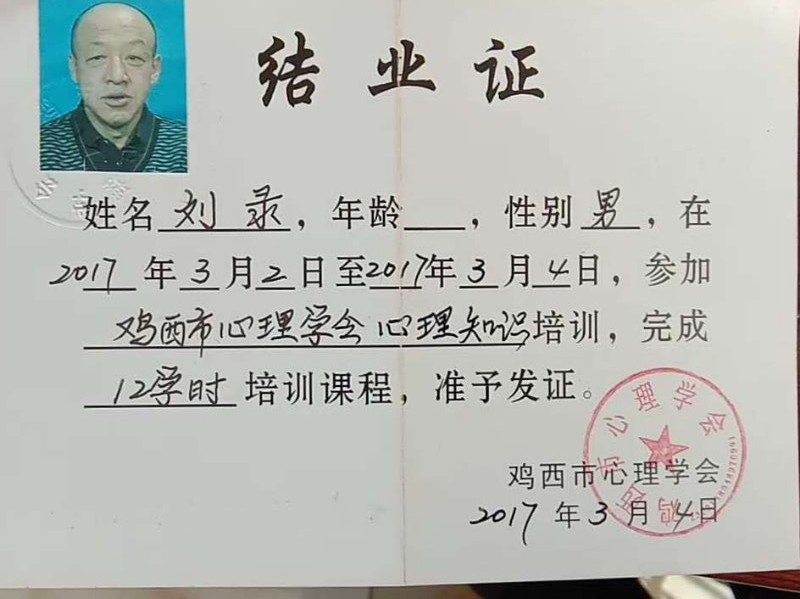 结业证
姓名刘录，年龄 ，性别男，在
2017年3月2日至2017年3月4日，参加
鸡西市心理学会心理知识培训，完成
12学时培训课程，准予发证。
鸡西市心理学会
鸡西市心理学会
2017年3月4日